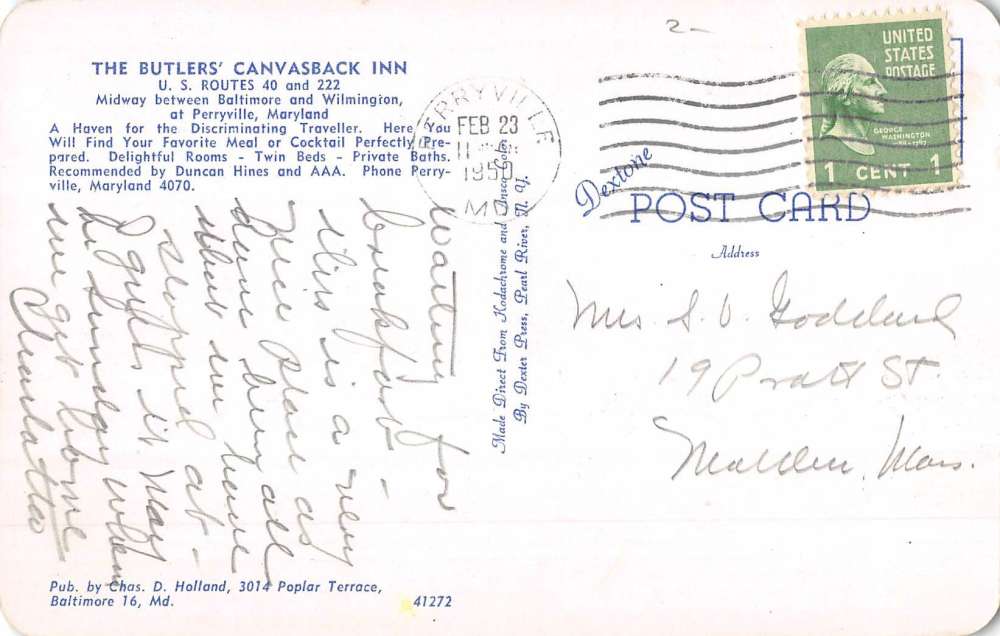 2-
THE BUTLERS' CANVASBACK INN
U. S. ROUTES 40 and 222
Midway between Baltimore and Wilmington,
at Perryville, Maryland
A Haven for the Discriminating Traveller. Here You
Will Find Your Favorite Meal or Cocktail Perfectly Pre-
pared. Delightful Rooms - Twin Beds - Private Baths.
Recommended by Duncan Hines and AAA. Phone Perry-
ville, Maryland 4070.
Waiting for
breakfast -
This is a very
nice place as
have been all
that we have
stopped at -
I guess it may
be Sunday when
we get home
Charlotte
Pub. by Chas. D. Holland, 3014 Poplar Terrace,
Baltimore 16, Md.
41272
Made Direct From Kodachrome and Ansco Color
By Dexter Press, Pearl River, N. Y.
PERRYVILLE
FEB 23
11
1950
MD
UNITED
STATES
POSTAGE
GEORGE
WASHINGTON
1 CENT 1
Dextone
POST CARD
Address
Mrs. S. V. Goddard
19 Pratt St.
Malden, Mass.